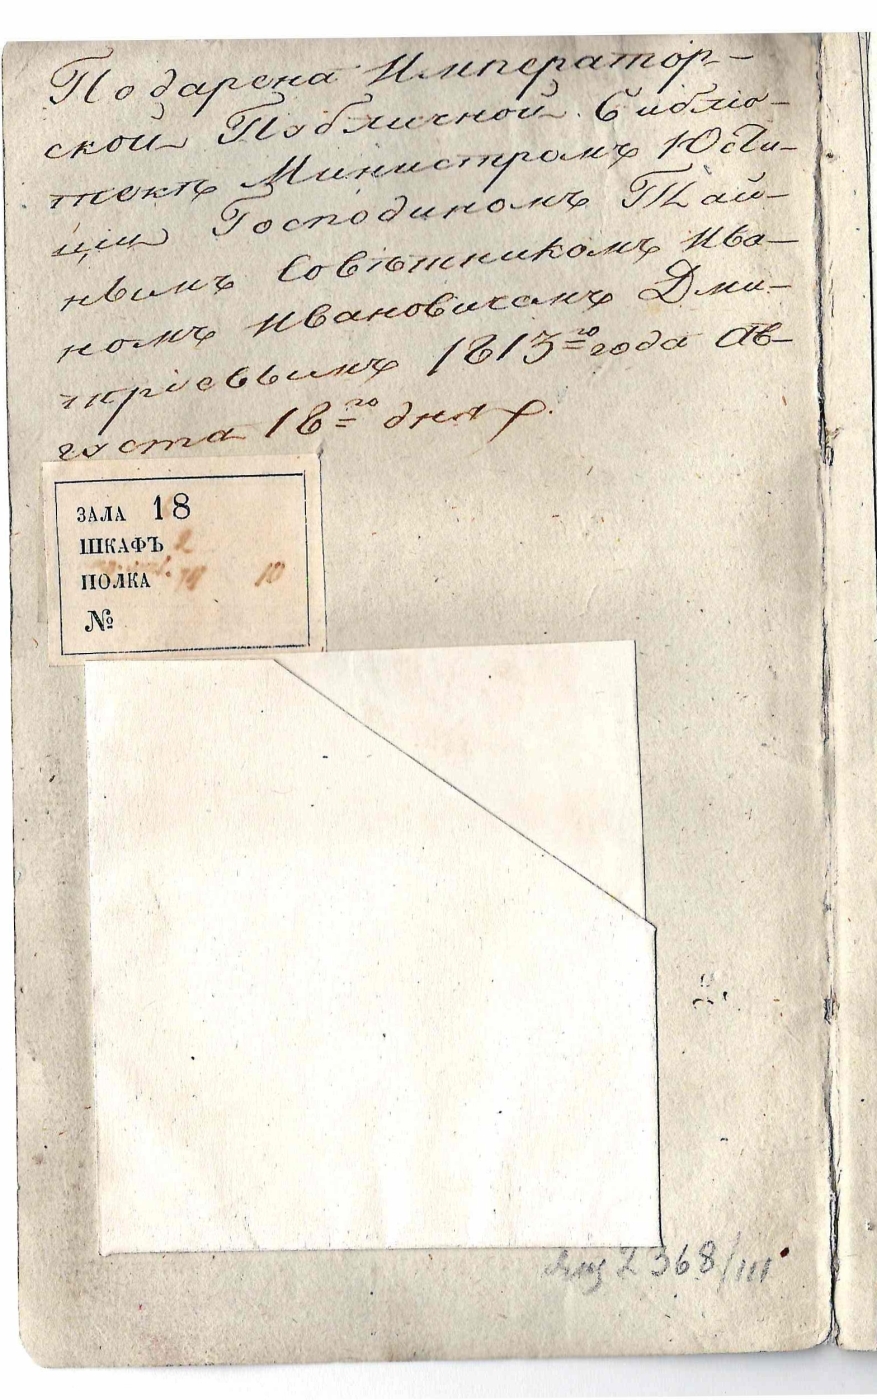 Подарена Император-
ской Публичной Библіо-
текѣ Министромъ Юсти-
ціи Господиномъ Тай-
нымъ Совѣтникомъ Ива-
номъ Ивановичемъ Дми-
тріевымъ 1813го года Ав-
густа 18го дня.
ЗАЛА 18
ШКАФЪ 2
ПОЛКА 10
№
2368/III